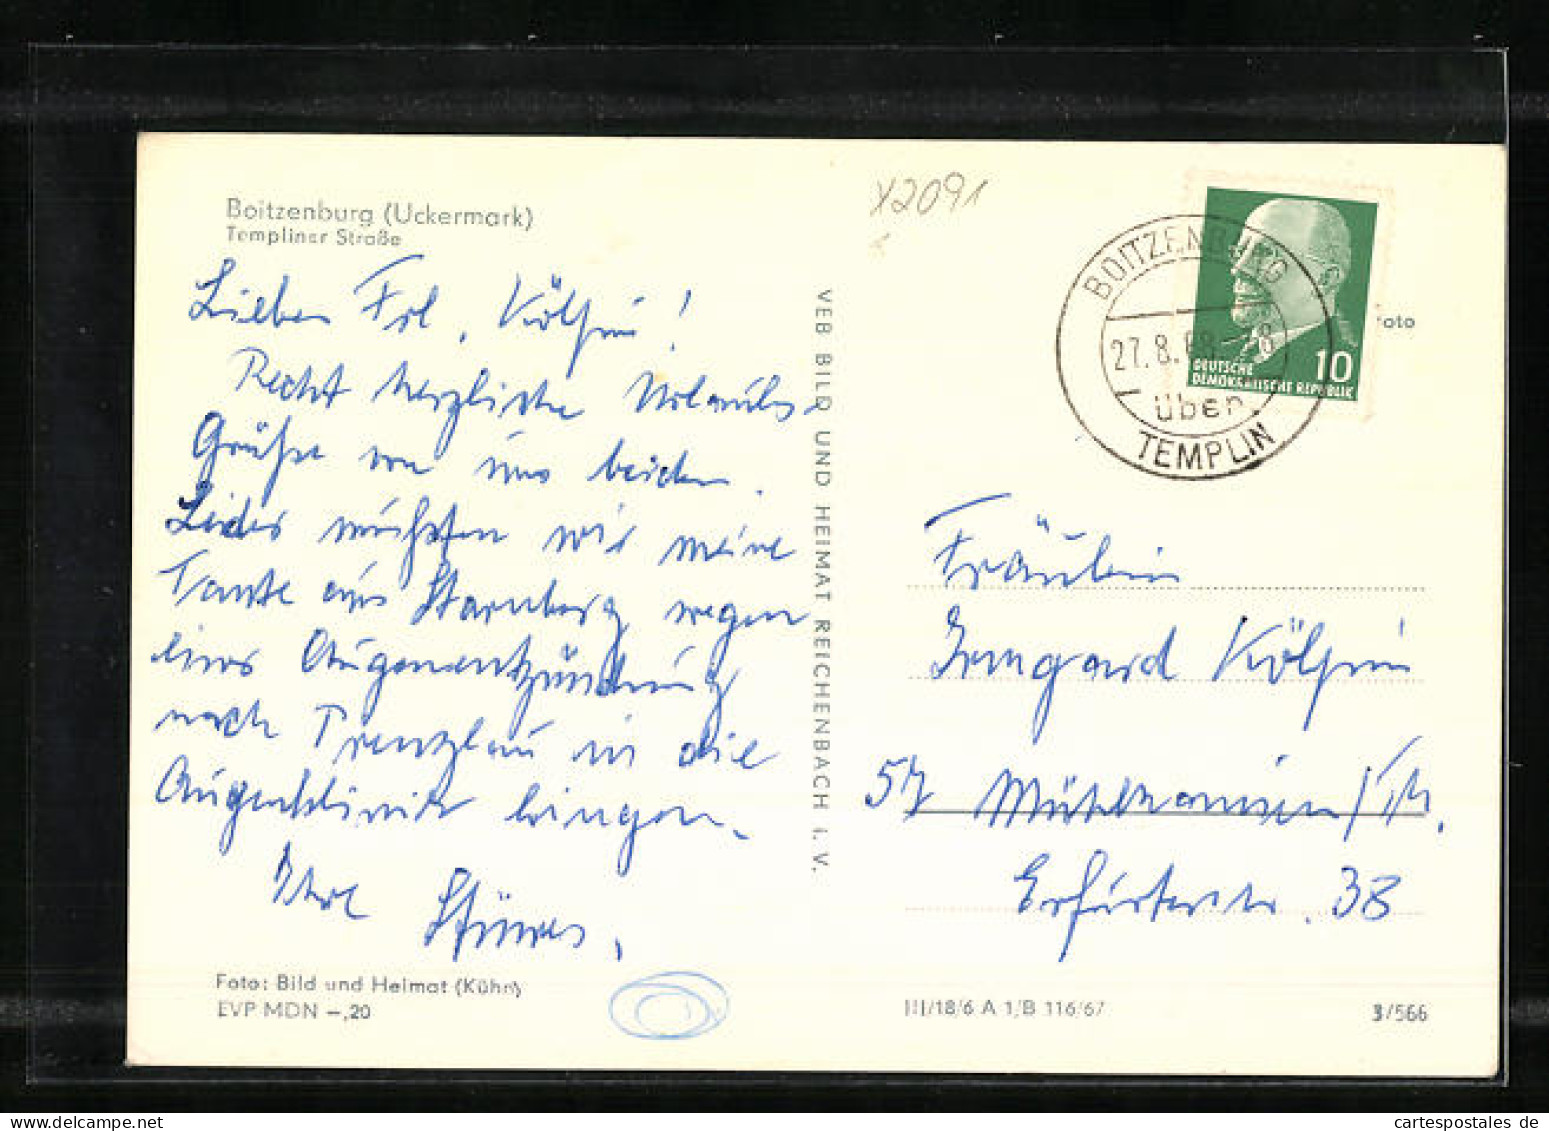 Boitzenburg (Uckermark)
Templiner Straße
Liebes Frl. Kölpin!
Recht herzliche Urlaubs-
Grüße von uns beiden.
Leider mußten wir meine
Tante aus Starnberg wegen
einer Augenentzündung
nach Prenzlau in die
Augenklinik bringen.
Ihre
Foto: Bild und Heimat (Kühn)
EVP MDN –,20
VEB BILD UND HEIMAT REICHENBACH i. V.
X2091
BOITZENBURG
27.8.68-8
über
TEMPLIN
10
DEUTSCHE
DEMOKRATISCHE REPUBLIK
Foto
Fräulein
Irmgard Kölpin
57 Mühlhausen/Th.
Erfurterstr. 38
III/18/6 A 1/B 116/67
3/566
cartespostales de